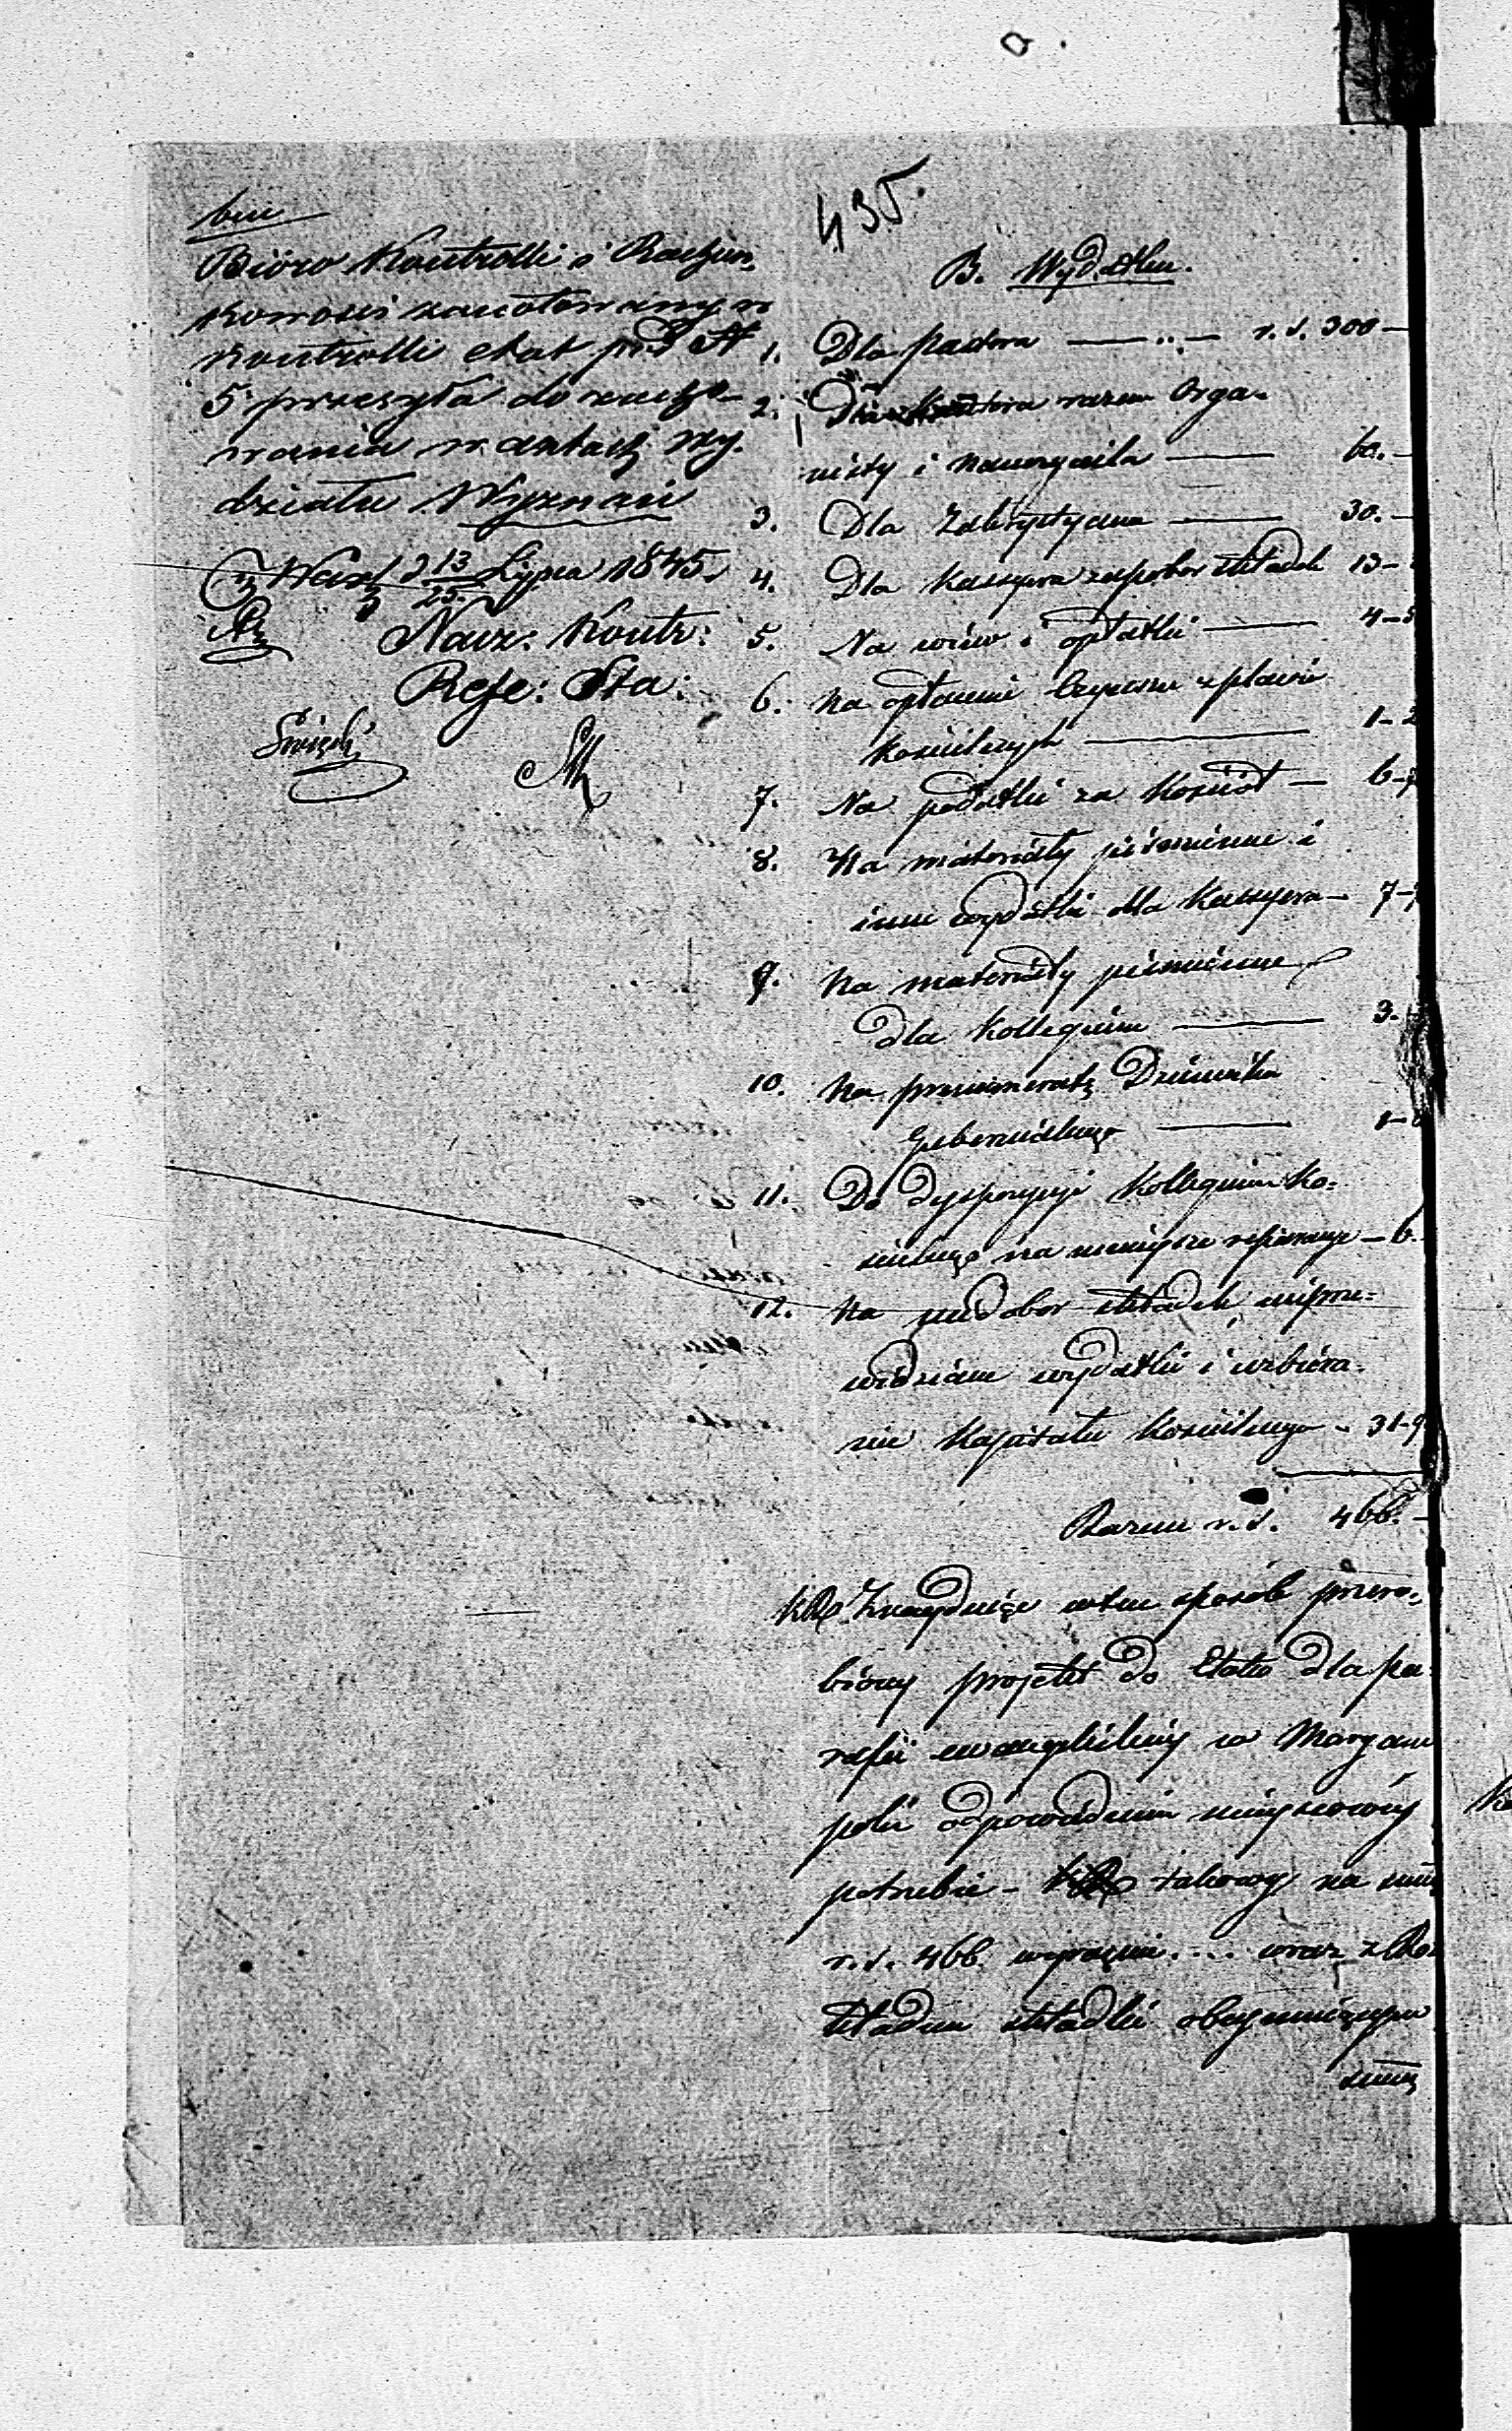 435.
Bióro Kontrolli i Rachun-
kowości zanotowany w
kontrolli etat pod N
5 przesyła do zacho-
wania w aktach wy-
działu Wyznań
Warsz d 13/25 Lipca 1845.
Nacz: Kontr:
Refe: Sta:
B. Wydatku.
1. Dla pastora — r. s. 300 —
2. Dla Kantora razem Orga-
nisty i nauczyciela — 60. —
3. Dla Zakrystyana — 30. —
4. Dla Kassyera za pobor składek 13 –
5. Na wino i opłatki — 4 – 5
6. Na opłacenie czynszu z placów
kościelnych — 1 – 2
7. Na podatki za Kościół — 6 –
8. Na materiały piśmienne i
inne wydatki dla Kassyera – 7 –
9. Na materiały piśmienne
dla Kollegium — 3.
10. Na prenumeratę Dziennika
Gubernialnego — 1 –
11. Do dyspozycyi Kollegium Ko-
ścielnego na mniejsze reperacye – 6.
12. Na niedobor składek, nieprze-
widziane wydatki i uzbiera-
nie Kapitału Kościelnego – 31 – 9
Razem r. s. 466. –
KR Znajdując w ten sposób przero-
biony projekt do Etatu dla pa-
rafii ewangelickiej w Maryam
polu odpowiednim miejscowej
potrzebie – takowy na sum
r. s. 466. wyraźnie . . . wraz z Roz
kładem składki obejmującym
summę